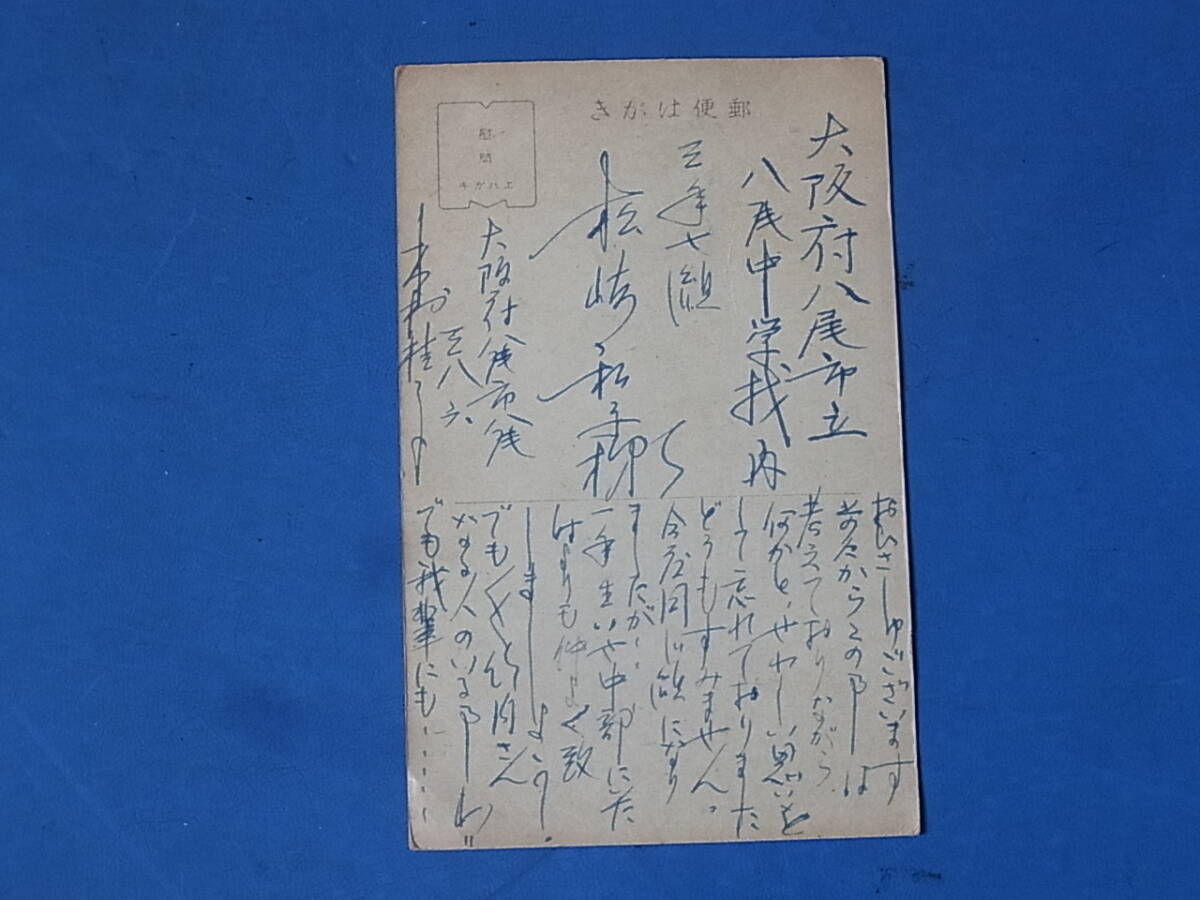 郵便はがき
慰問
エハガキ
大阪府八尾市立
八尾中学校内
三年七組
松崎和子様
大阪府八尾市八尾
三八六
おひさしゅございます
前からこの事は
考えておりながら
何かと、せわしい思いを
して忘れておりました
どうもすみません。
今度同じ組になり
ましたが‥
一年生いや中部にいた
よりも仲よく致
しましょうよ。
でも
なる人のいる事わ
でも我輩にも‥‥‥